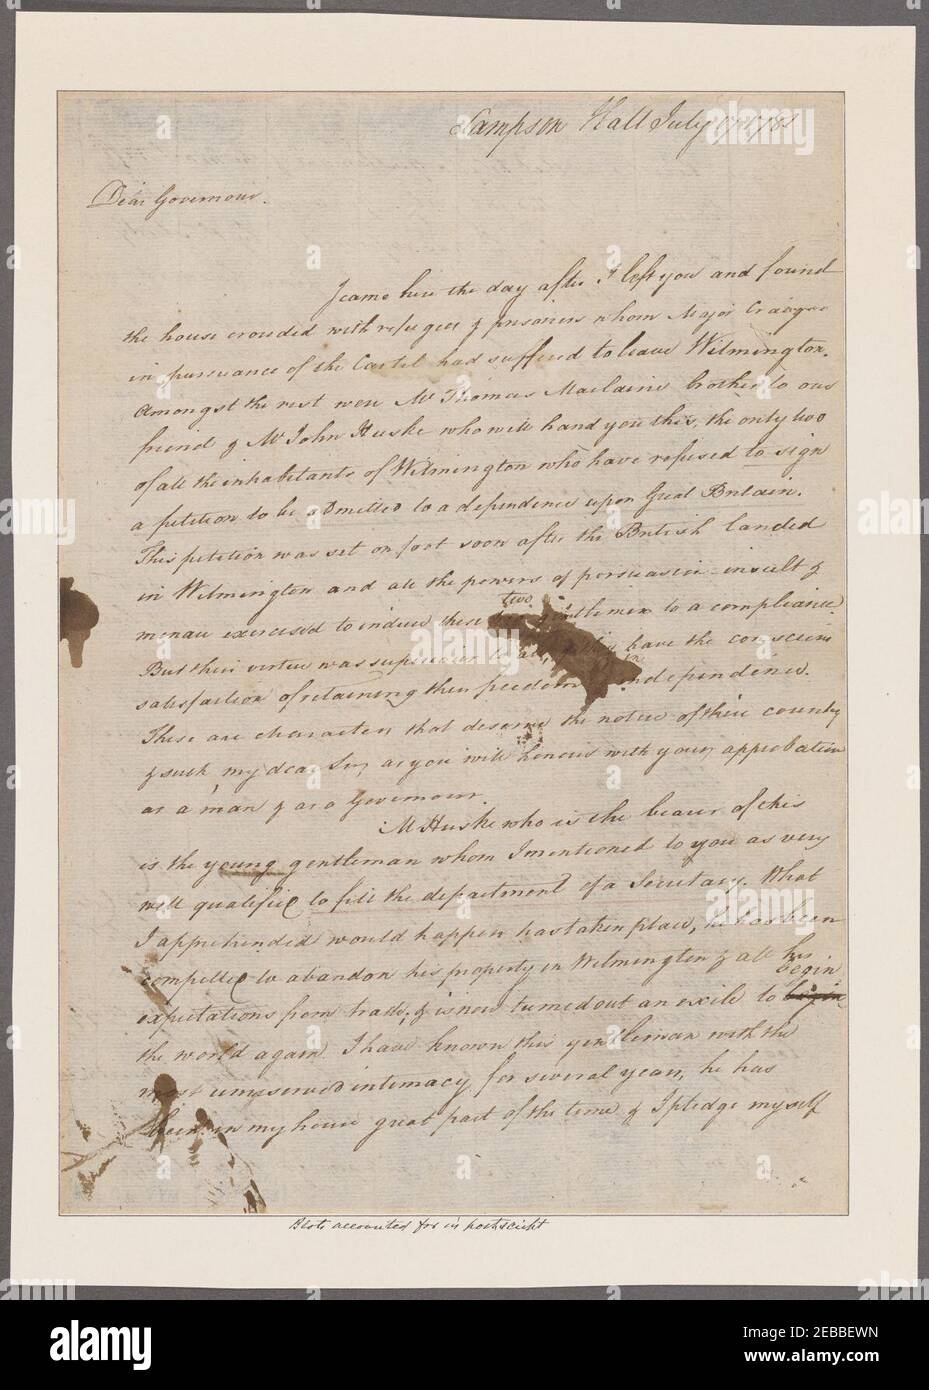 Sampson Hall July 17th 1781
Dear Governour.
I came here the day after I left you and found
the house crouded with refugees & prisoners whom Major Craige
in pursuance of the Cartel had suffered to leave Wilmington.
Amongst the rest were Mr Thomas Maclaine brother to our
friend & Mr John Huske who will hand you this, the only two
of all the inhabitants of Wilmington who have refused to sign
a petition to be admitted to a dependence upon Great Britain.
This petition was set on foot soon after the British landed
in Wilmington and all the powers of persuasion insult &
menace exercised to induce these two gentlemen to a compliance.
But their virtue was superior to all, they have the conscious
satisfaction of retaining their freedom & independence.
These are characters that deserve the notice of their country
& such my dear Sir, as you will honour with your approbation
as a man & as a Governour.
Mr Huske who is the bearer of this
is the young gentleman whom I mentioned to you as very
well qualified to fill the department of a Secretary. What
I apprehended would happen has taken place, he has been
compelled to abandon his property in Wilmington & all his
expectations from trade, & is now turned out an exile to begin begin
the world again. I have known this gentleman with the
most unreserved intimacy for several years, he has
been in my house great part of the time & I pledge myself
Blots accounted for in postscript
alamy
Image ID: 2EBBEWN
www.alamy.com